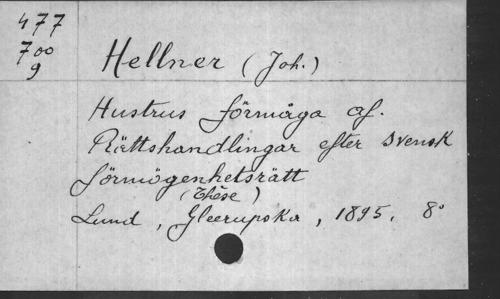 477
700
9
Hellner (Joh.)
Hustrus förmåga af.
Rättshandlingar efter Svensk
förmögenhetsrätt
(Thèse)
Lund, Gleerupska, 1895, 8°